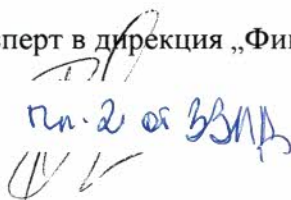 сперт в дирекция „Фи
чл. 2 от ЗЗЛД